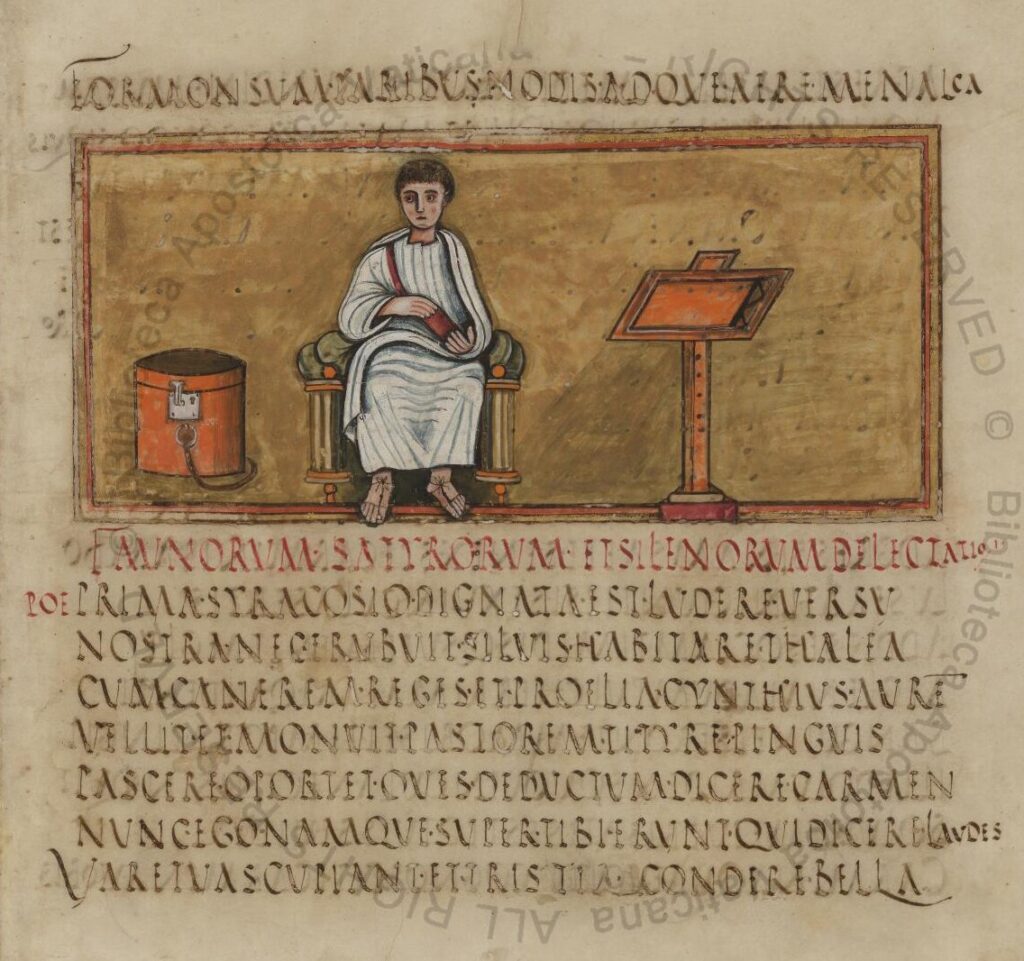 FORMONSVM·PARIBVS·NODIS·ADQVE·AERE·MENALCA
FAVNORVM·SATYRORVM·ET·SILENORVM·DELECTATIO
POE PRIMA·SYRACOSIO·DIGNATA·EST·LVDERE·VERSV
NOSTRA·NEC·ERVBVIT·SILVIS·HABITARE·THALEA
CVM·CANEREM·REGES·ET·PROELIA·CYNTHIVS·AVRĒ
VELLIT·ET·MONVIT·PASTOREM·TITYRE·PINGVIS
PASCERE·OPORTET·OVES·DEDVCTVM·DICERE·CARMEN
NVNC·EGO·NAMQVE·SVPER·TIBI·ERVNT·QVI·DICERE·LAVDES
VARE·TVAS·CVPIANT·ET·TRISTIA·CONDERE·BELLA
© Biblioteca Apostolica Vaticana ALL RIGHTS RESERVED